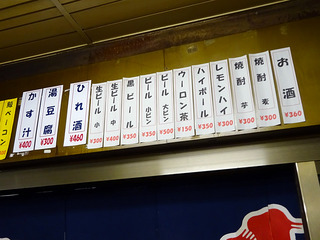 お酒 ¥360
焼酎 麦 ¥300
焼酎 芋 ¥300
レモンハイ ¥350
ハイボール ¥350
ウーロン茶 ¥150
ビール 大ビン ¥500
ビール 小ビン ¥350
黒ビール ¥350
生ビール 中 ¥400
生ビール 小 ¥300
ひれ酒 ¥460
湯豆腐 ¥300
かす汁 ¥400
ベーコン